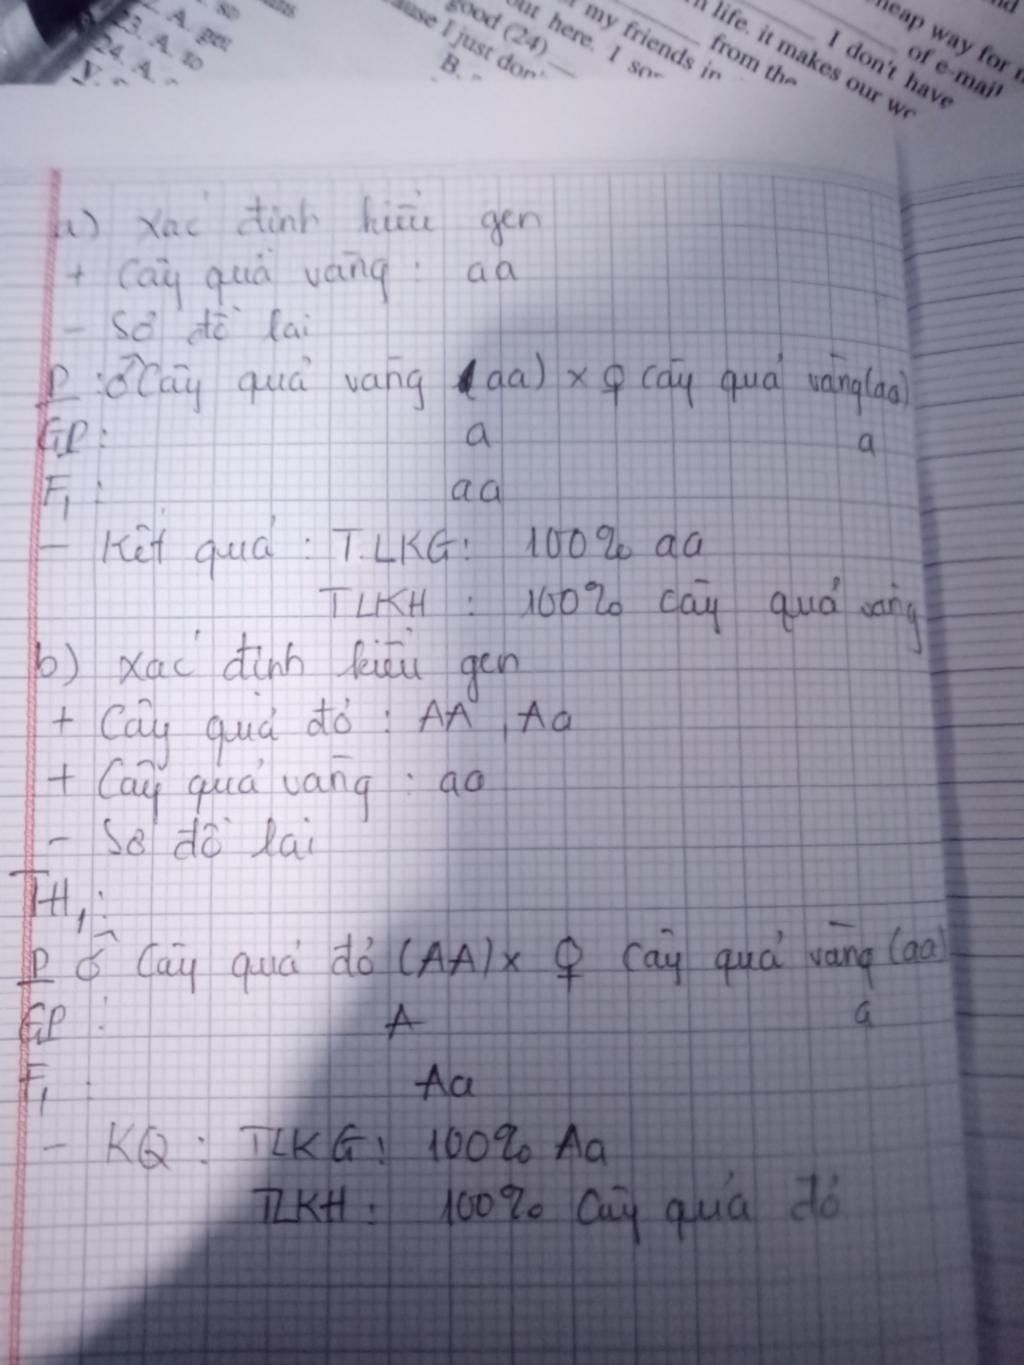 23. A. so
24. A.
B.
good (24)
out here. I
my friends in
from the
life. it makes our
I don't have
of e-mail
cheap way for
a) Xác định kiểu gen
+ Cây quả vàng : aa
- Sơ đồ lai
P : ♂ Cây quả vàng (aa) x ♀ cây quả vàng (aa)
GP : a a
F1 : aa
- Kết quả : TLKG : 100% aa
TLKH : 100% cây quả vàng
b) Xác định kiểu gen
+ Cây quả đỏ : AA, Aa
+ Cây quả vàng : aa
- Sơ đồ lai
TH1 :
P ♂ Cây quả đỏ (AA) x ♀ Cây quả vàng (aa)
GP : A a
F1 : Aa
- KQ : TLKG : 100% Aa
TLKH : 100% Cây quả đỏ